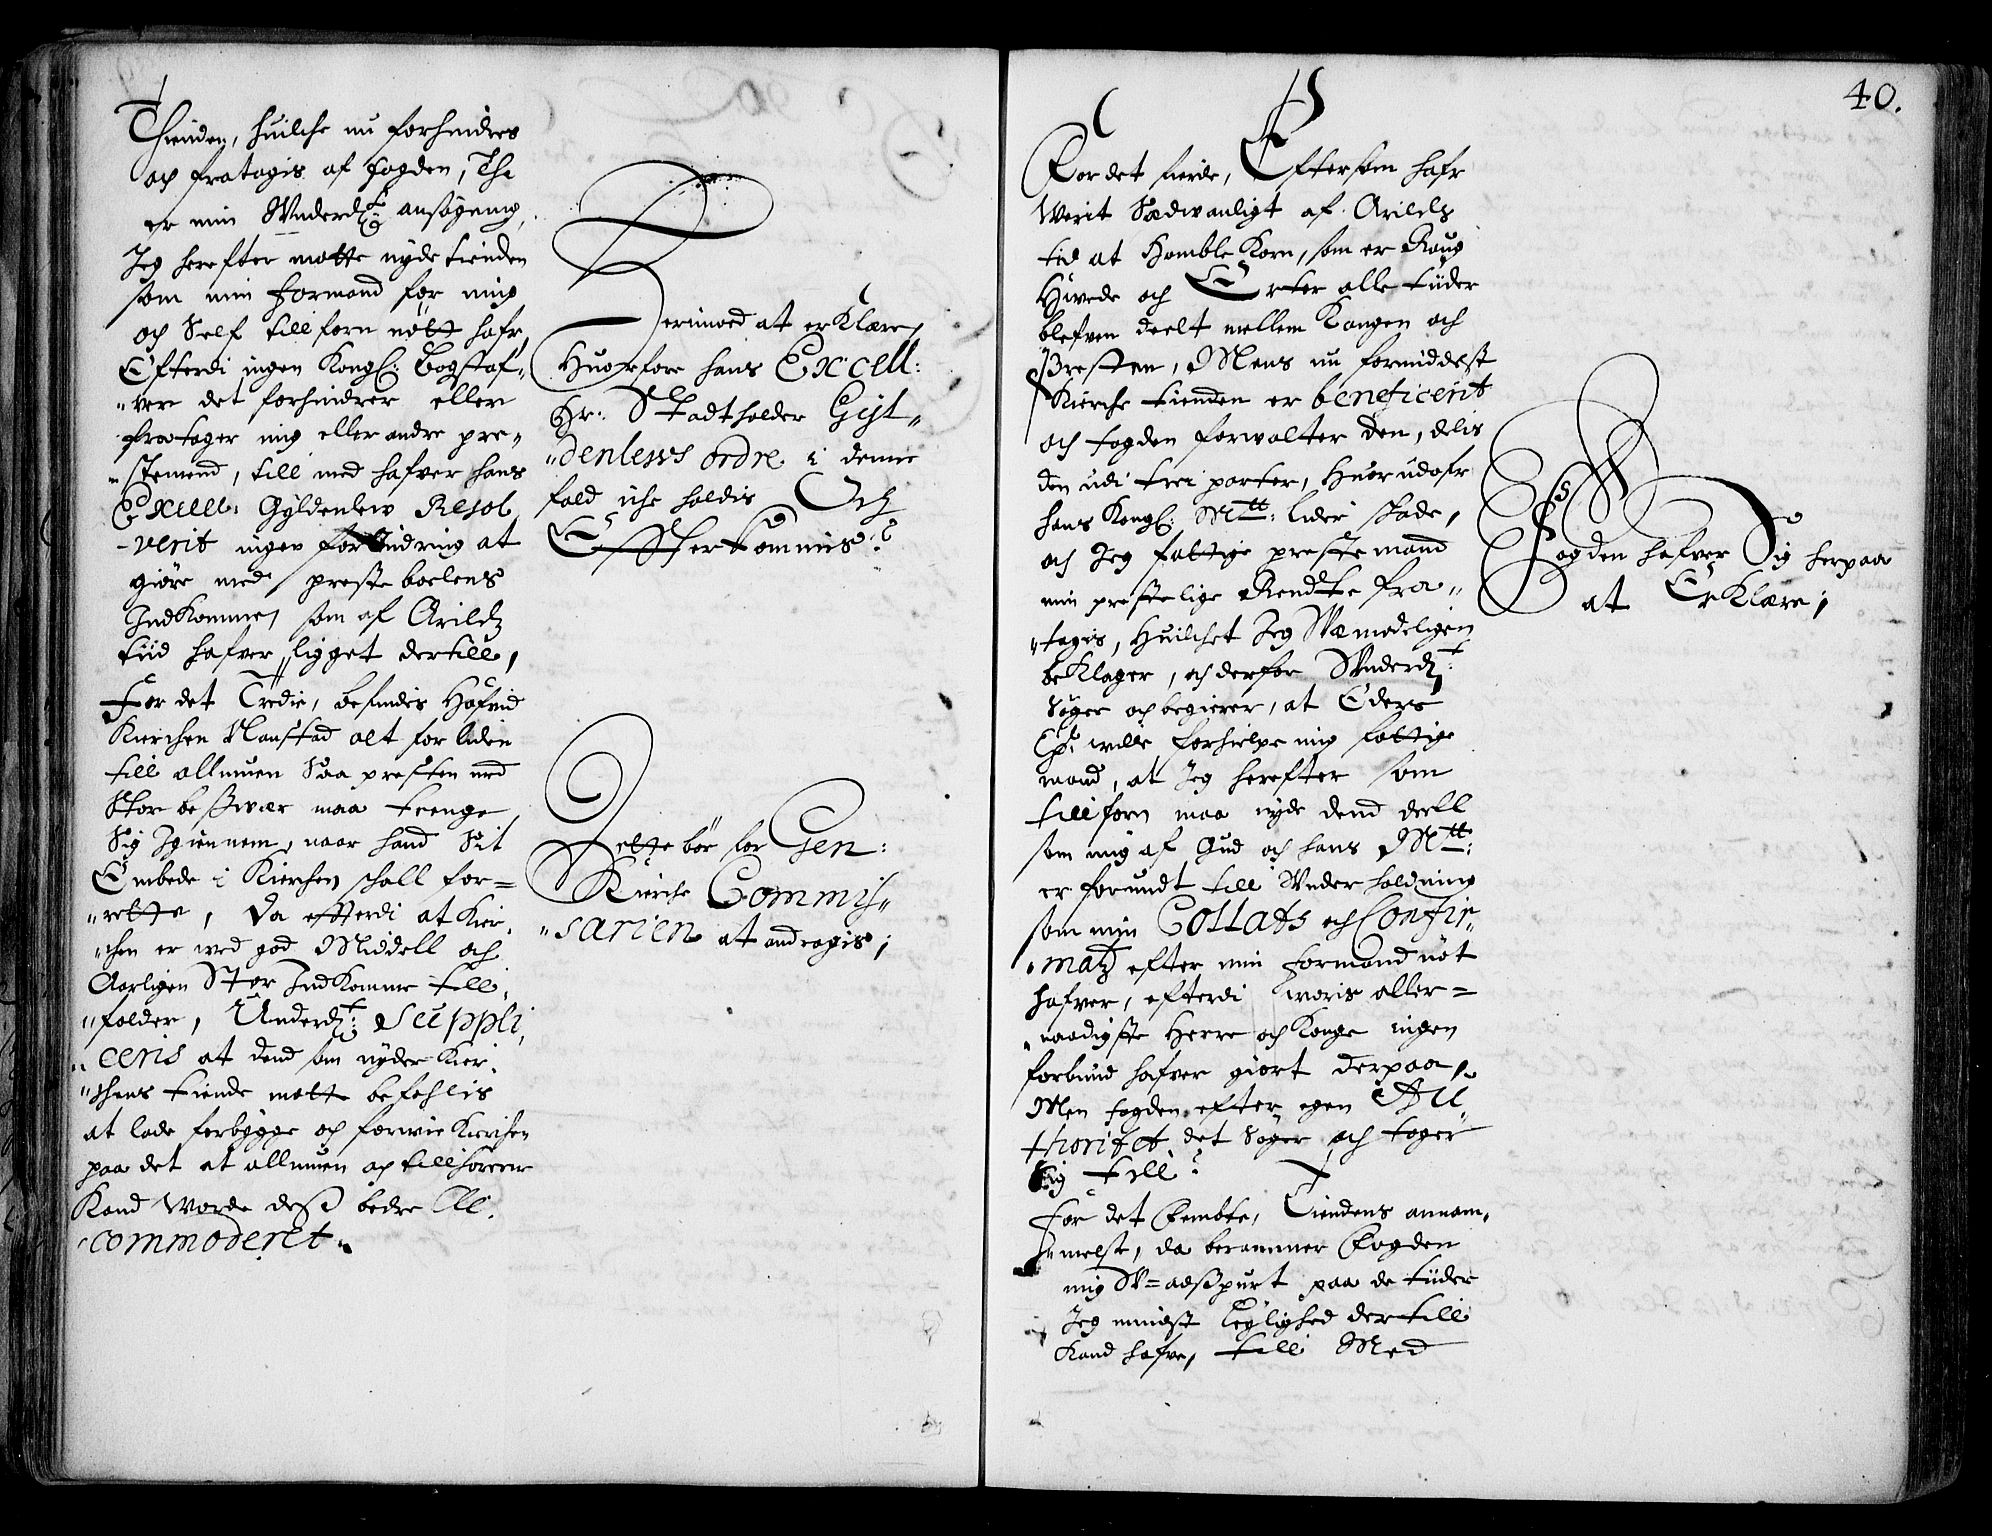 Thienden, huilche nu forhindres
och fratagis af fogden, Thi
er min Vnderd: ansøgning,
Jeg herefter motte nyde tienden
som min formand før mig
och Self till forn nøtt hafr,
Efterdi ingen Kongl: Bogstaf¬
"ver det forhindrer eller
fratager mig eller andre pre¬
"stemend, till med hafver hans
Excell: Gyldenlew Resol
¬verit ingen forhindring at
giøre med prestebolens
IndKomme, som af Arildz
tiid hafver ligget dertill,
For det Tredie, befindis Høfvid
Kierchen Nanstad alt for liden
till allmuen Saa presten med
Stor beswær maa trenge
Sig Igiennem, naar hand Sit
Embede i Kierchen schall for=
"rette, Da efterdi at Kier,
"chen er wed god Middell och
Aarligen Stor IndKomme till,
"falder, Underd: Suppli,
"ceris at dend som nyder Kier,
"chens tiende motte befahlis
at lade forbygge och forwie Kierchen
paa det at allmuen och tillhørerne
Kand worde dess bedre Ac,
"commoderet.
Derimod at erKlære,
Huorfore hans Excell:
Hr: Stadtholder Gyl¬
"denlews ordre i denne
fald iche holdis Och
Efterkommis?
Dette bør for Gen:
Kirche Commis¬
"sarien at andragis;
40.
For det fierde, Eftersom hafr
Werit Sædwanligt af Arildz
tid at Hamble Korn, som er Roug
Hwede och Erter alle tiider
blefven deelt mellem Kongen och
Presten, Mens nu formiddelst
Kierche tienden er beneficerit
och fogden forwalter den, delis
den udi trei parter, Huorudofr
hans Kongl: Mtt: lider skade,
och Jeg fattige prestemand
min prestelige Rendte fra¬
"tagis, Huilchet Jeg Wemodeligen
beKlager, och derfor Vnderd:
Søger och begierer, at Eders
wille forhielpe mig fattige
mand, at Jeg herefter som
till forn maa nyde dend deell
som mig af Gud och hans Mtt:
er forundt till Vnderholdning
som min Collats och Confir¬
"matz efter min formand nøt
hafver, efterdi woris aller=
"naadigste Herre och Konge ingen
forbund hafver giort derpaa,
Men fogden efter egen Au,
thoritet det Søger och tager
Sig till?
For det Fembte, Tiendens annam,
"melse, da berammer Fogden
mig V=adspurt paa de tiider
Jeg mindst leylighed dertill
Kand hafve, till Med
Fogden hafver Sig herpaa
at ErKlære;